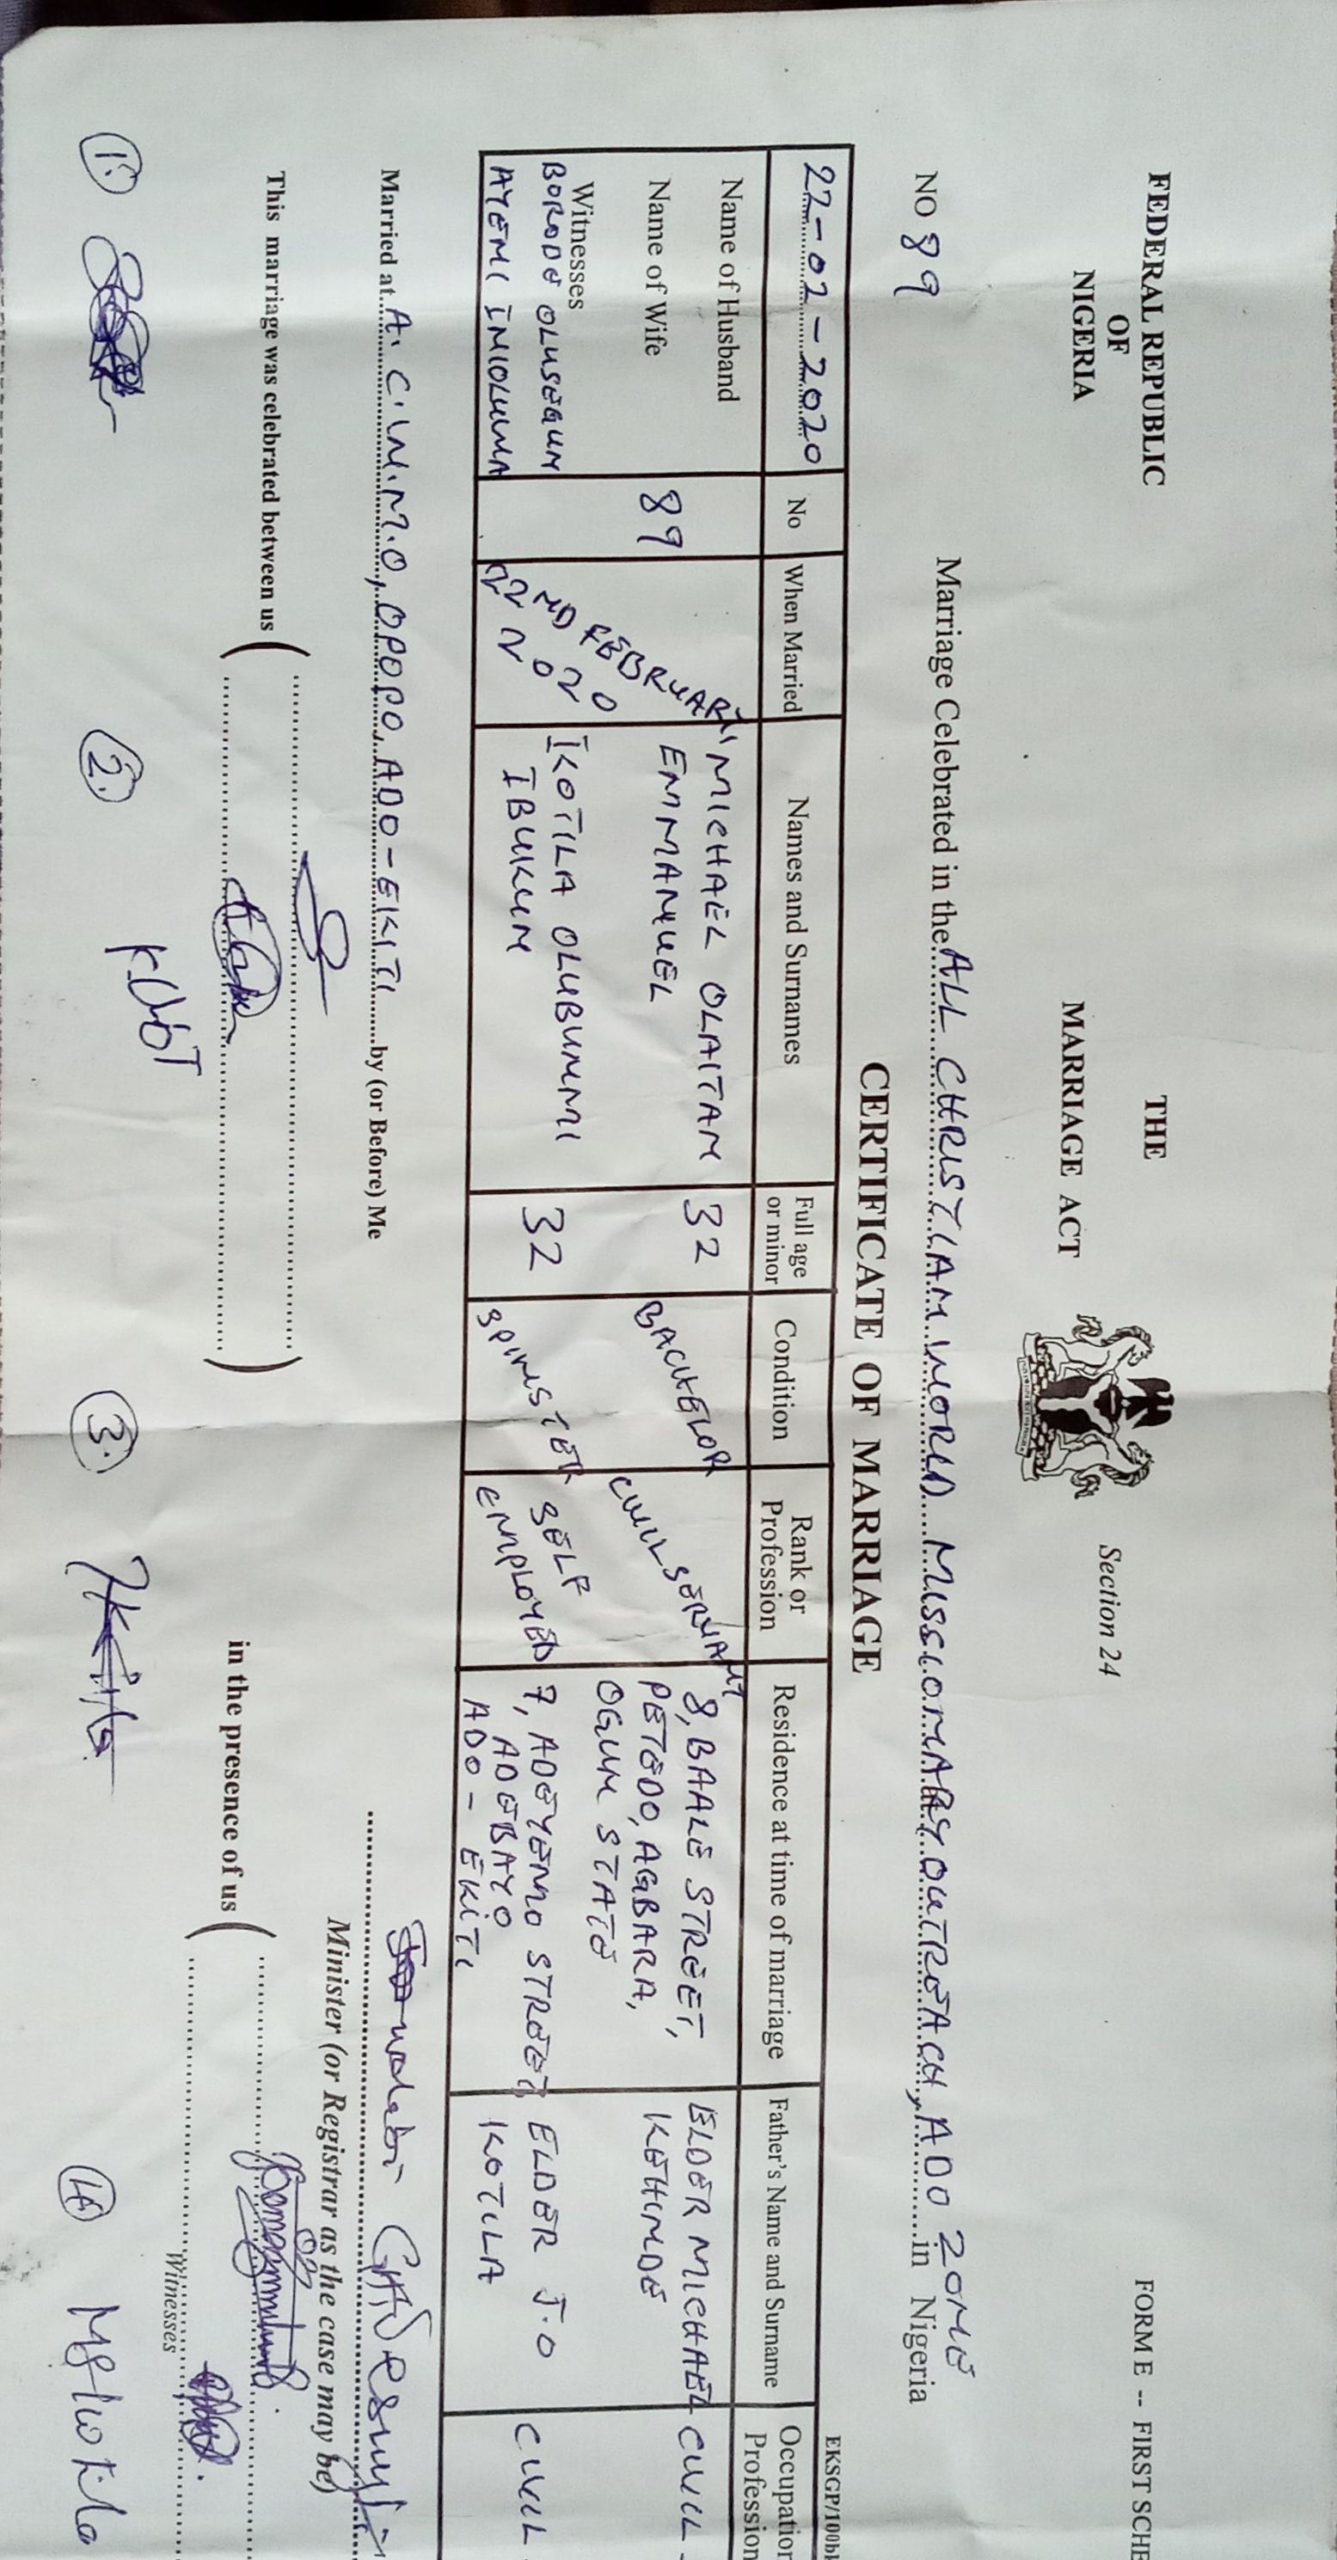 FEDERAL REPUBLIC
OF
NIGERIA
THE
MARRIAGE ACT
Section 24
FORM E -- FIRST SCHE
NO 89
Marriage Celebrated in the ALL CHRISTIAN WORLD MISSIONARY OUTREACH, ADO ZONE in Nigeria
CERTIFICATE OF MARRIAGE
EKSGP/100bl
22-02-2020
No
When Married
Names and Surnames
Full age or minor
Condition
Rank or Profession
Residence at time of marriage
Father's Name and Surname
Occupation Profession
Name of Husband
Name of Wife
89
22ND FEBRUARY
2020
MICHAEL OLAITAN
EMMANUEL
32
BACHELOR
CIVIL SERVANT
8, BAALE STREET,
PETEDO, AGBARA,
OGUN STATE
ELDER MICHAEL
KEHINDE
CIVIL
Witnesses
BORODE OLUSEGUN
AYENI INIOLUWA
IKOTILA OLUBUNMI
IBUKUN
32
SPINSTER
SELF
EMPLOYED
7, ADEYEMO STREET,
ADEBAYO
ADO-EKITI
ELDER J.O
IKOTILA
CIVIL
Married at A.C.W.M.O, OPOPO, ADO-EKITI by (or Before) Me
Minister (or Registrar as the case may be)
This marriage was celebrated between us
in the presence of us
Witnesses
1.
2.
3.
4.